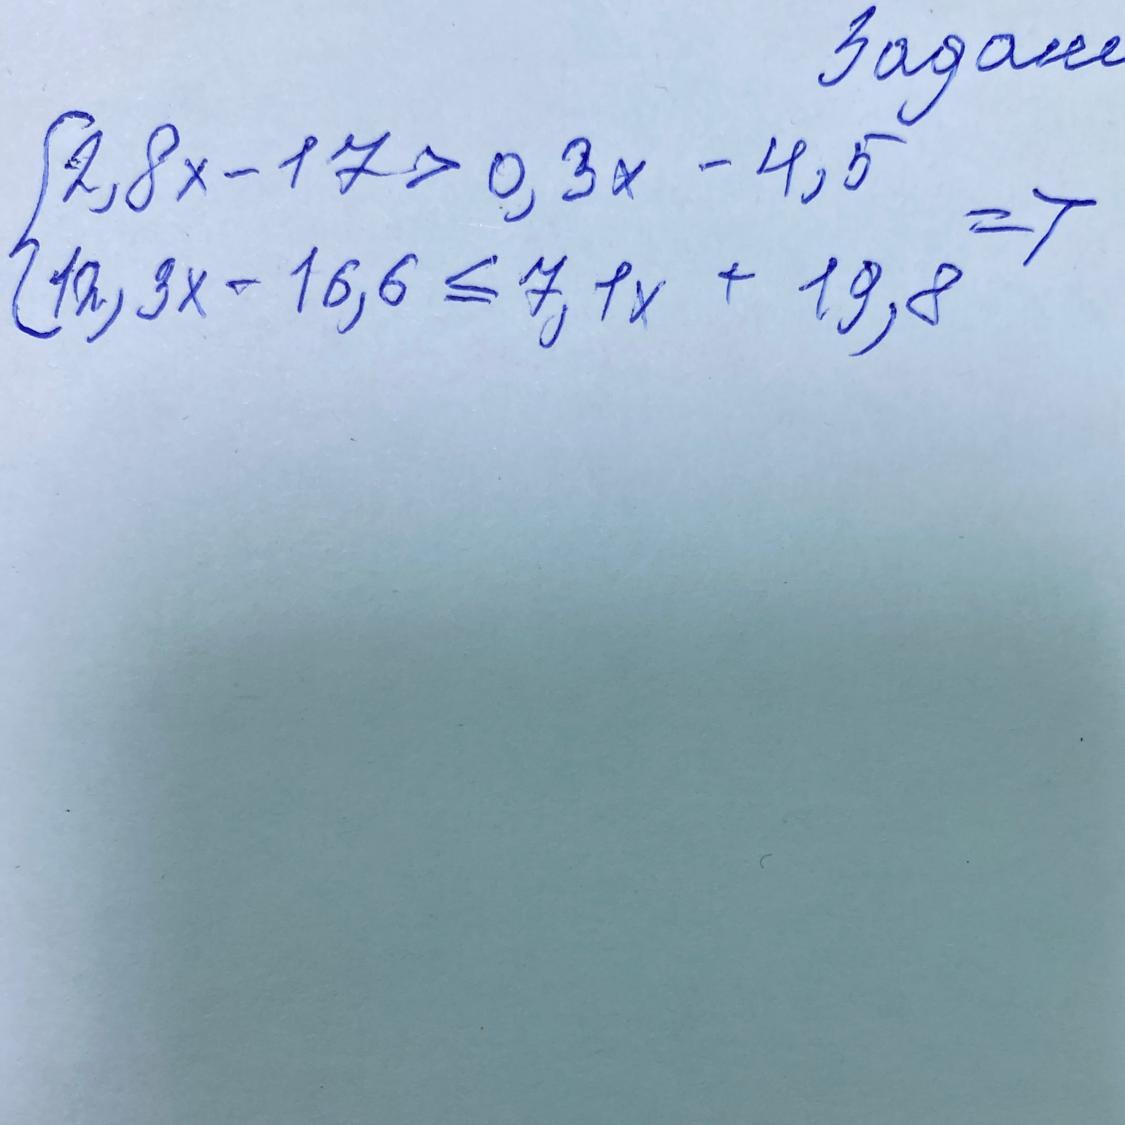 Задани
{2,8x - 17 > 0,3x - 4,5
{12,3x - 16,6 ≤ 7,1x + 19,8 =>